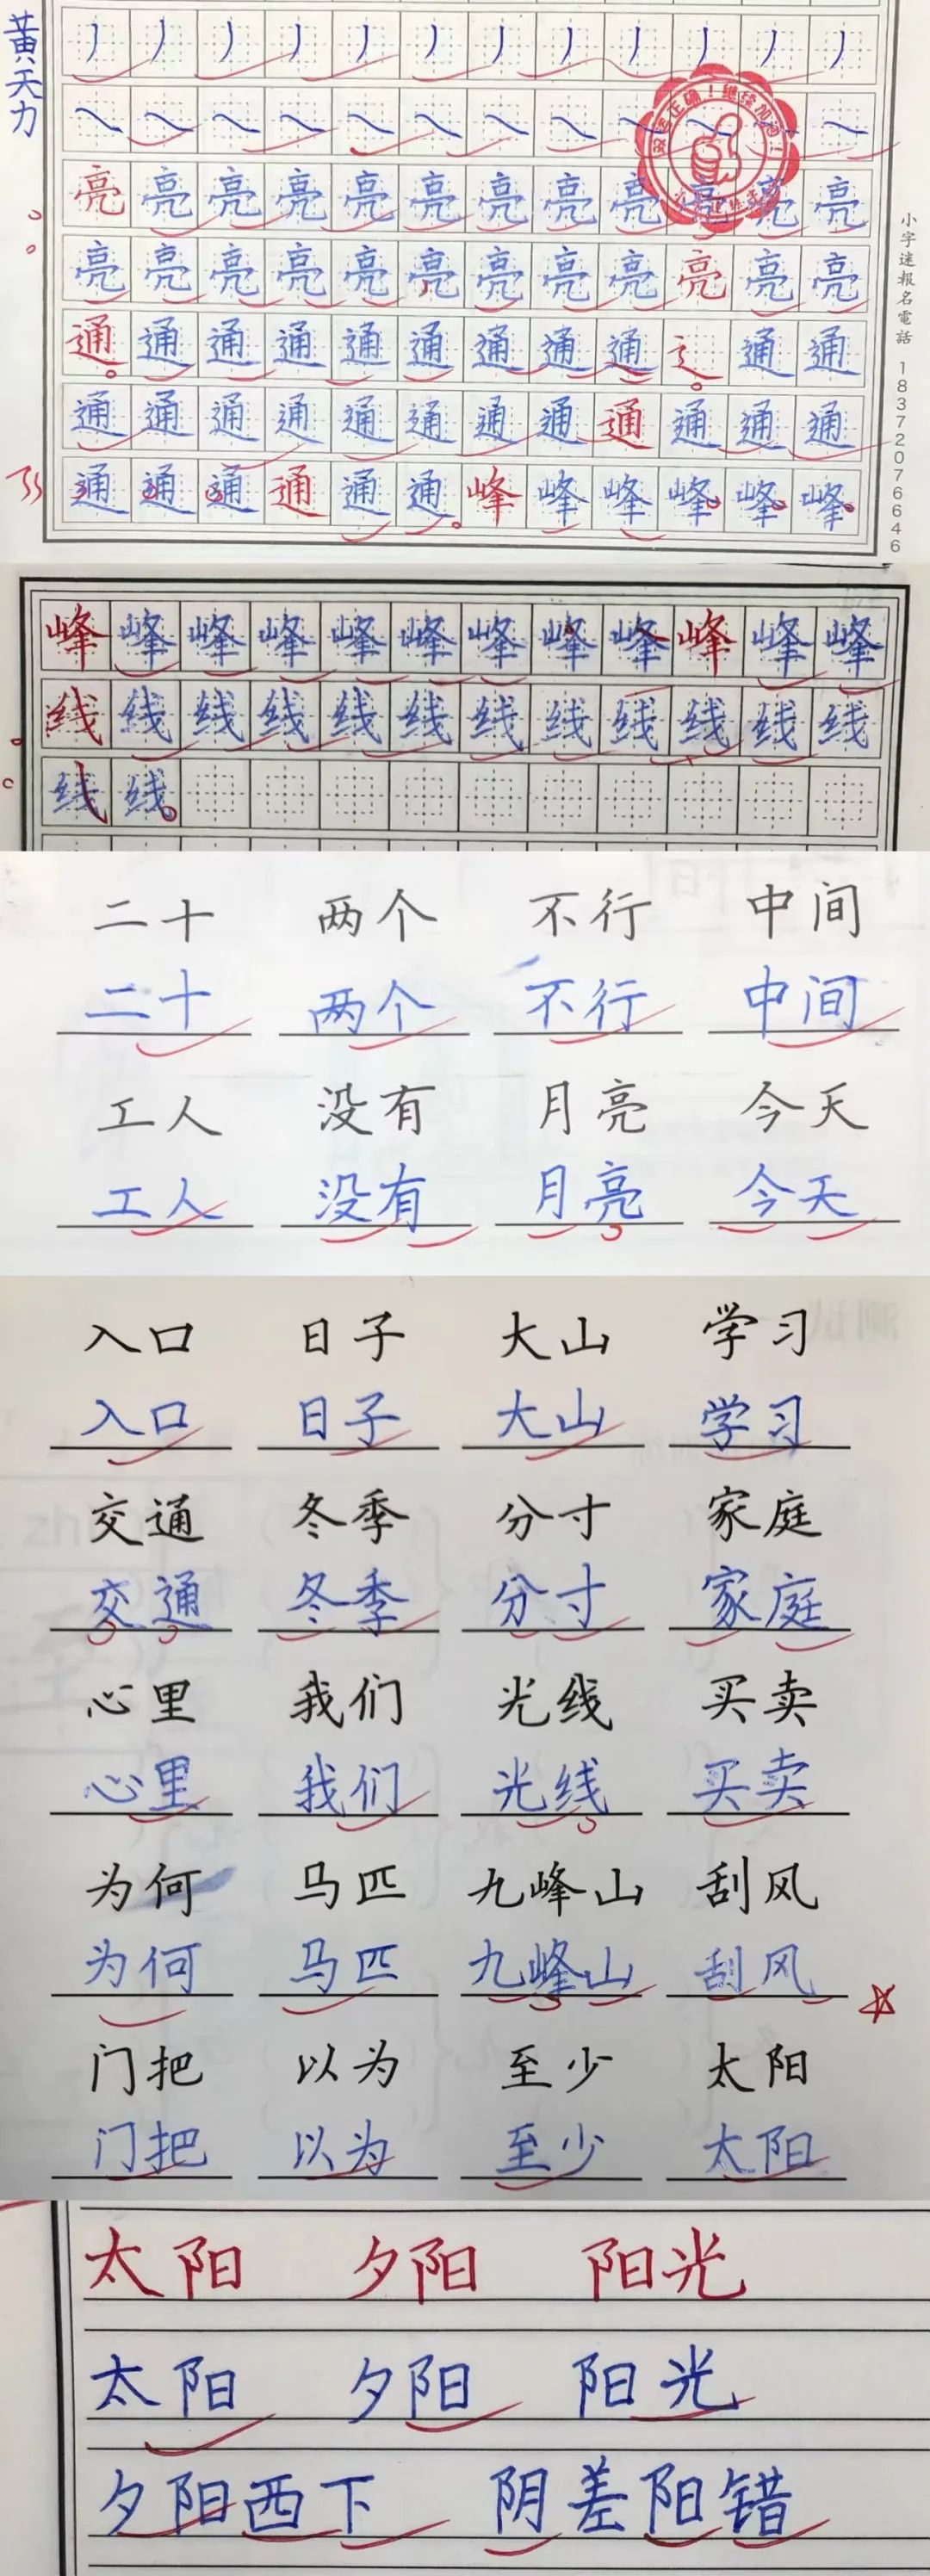 黄天力
丿丿丿丿丿丿丿丿丿丿丿丿
㇏㇏㇏㇏㇏㇏㇏㇏㇏㇏㇏㇏
双姿正确！继续加油！
亮亮亮亮亮亮亮亮亮亮亮亮
亮亮亮亮亮亮亮亮亮亮亮亮
通通通通通通通通通辶通通
通通通通通通通通通通通通
通通通通通通峰峰峰峰峰峰
小字迷報名電話 18372076646
峰峰峰峰峰峰峰峰峰峰峰峰
线线线线线线线线线线线线
线线
二十 两个 不行 中间
二十 两个 不行 中间
工人 没有 月亮 今天
工人 没有 月亮 今天
入口 日子 大山 学习
入口 日子 大山 学习
交通 冬季 分寸 家庭
交通 冬季 分寸 家庭
心里 我们 光线 买卖
心里 我们 光线 买卖
为何 马匹 九峰山 刮风
为何 马匹 九峰山 刮风
门把 以为 至少 太阳
门把 以为 至少 太阳
太阳 夕阳 阳光
太阳 夕阳 阳光
夕阳西下 阴差阳错